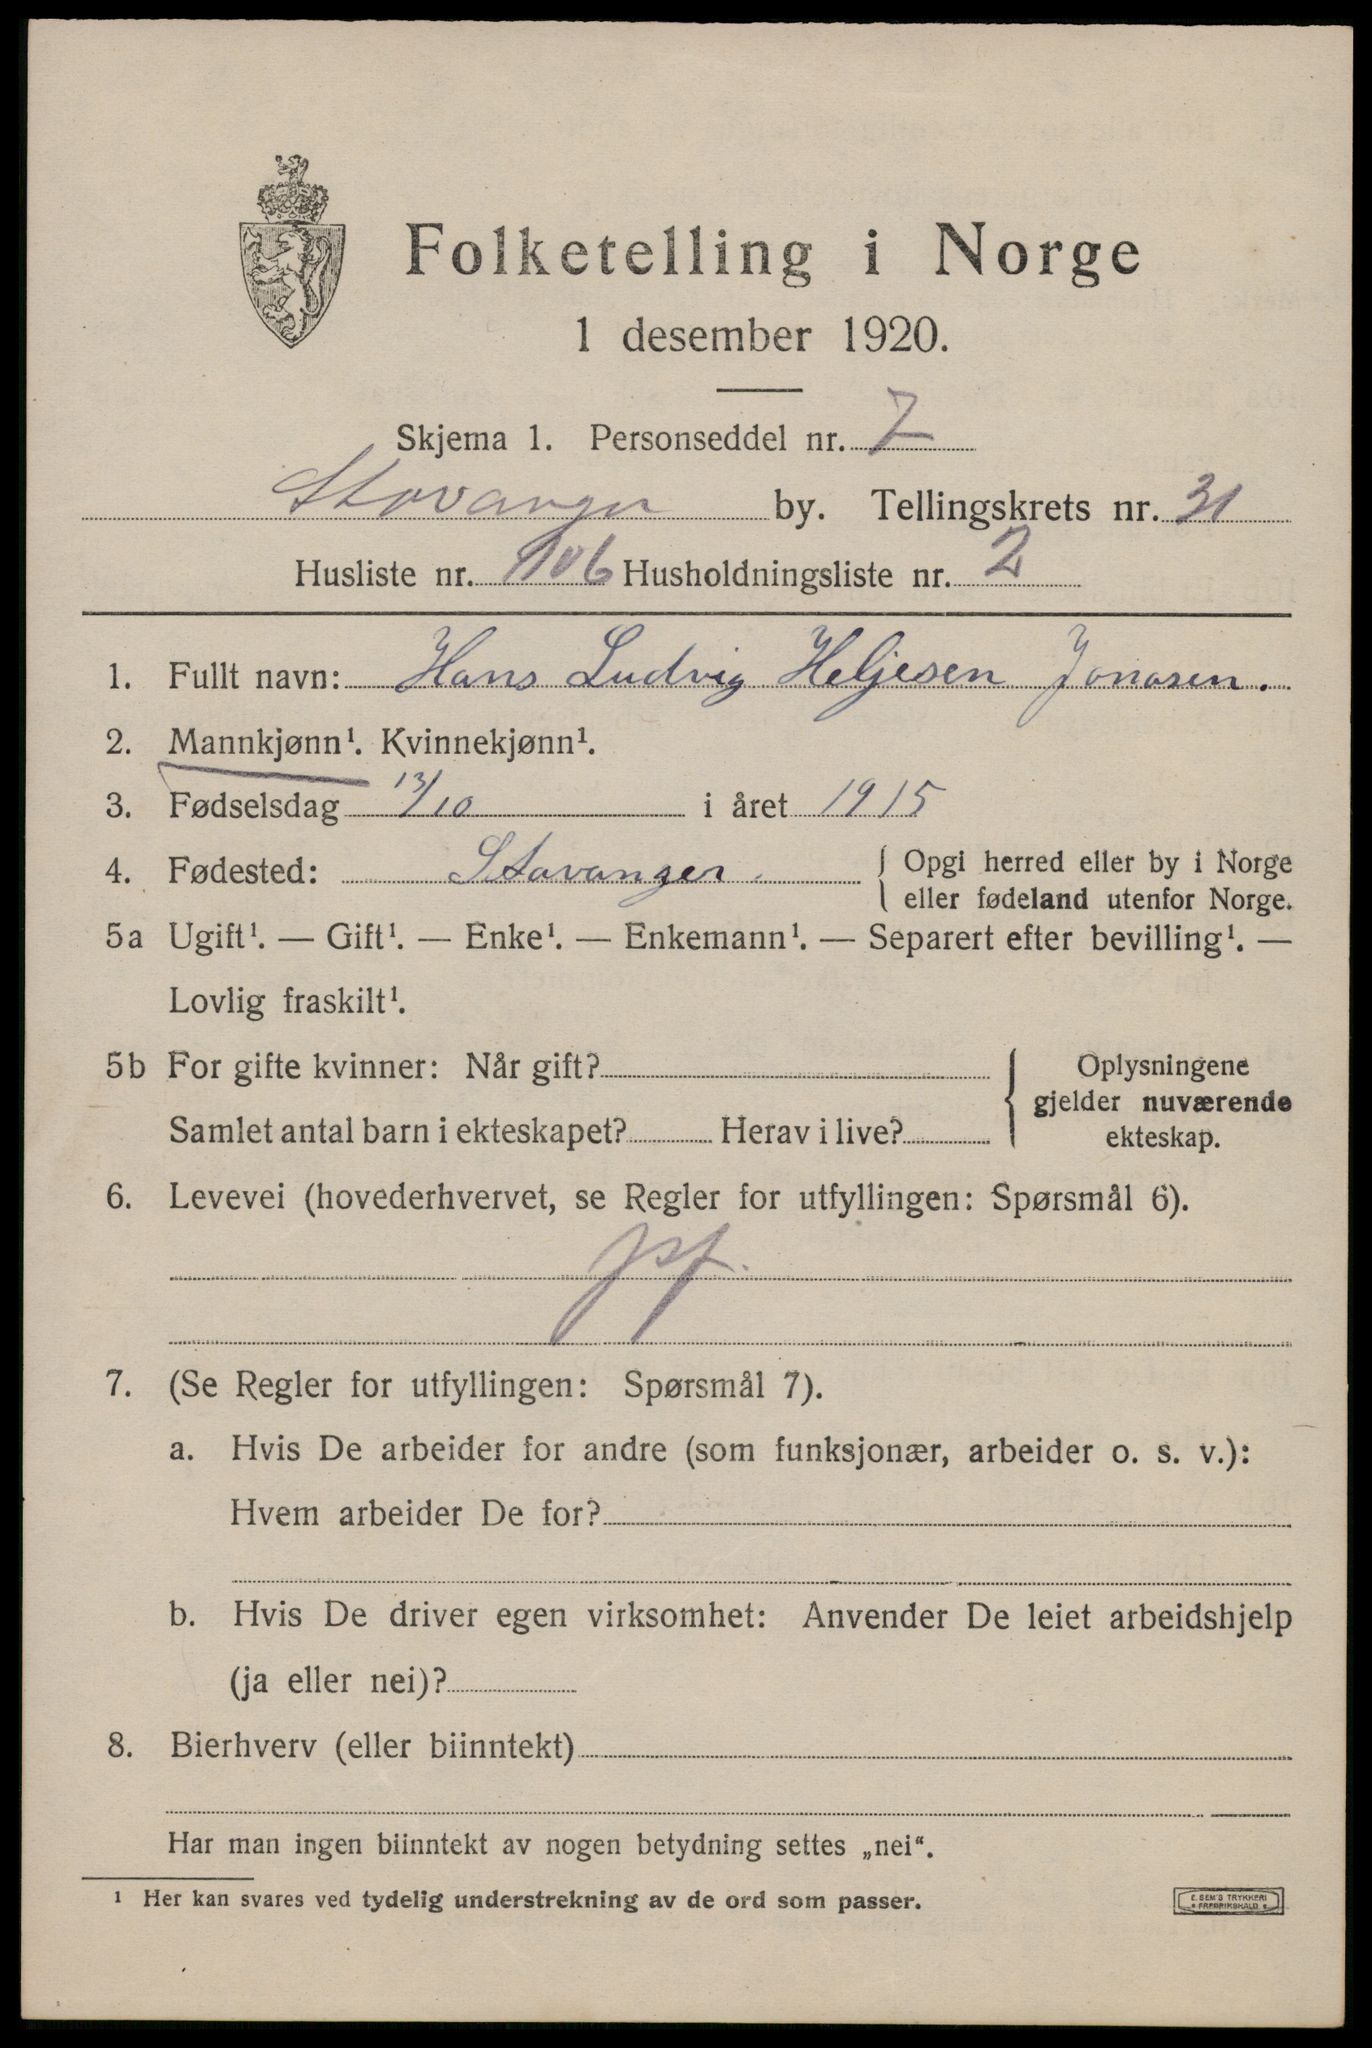 Folketelling i Norge
1 desember 1920.
Skjema 1. Personseddel nr. 7
Stavanger by. Tellingskrets nr. 31
Husliste nr. 106 Husholdningsliste nr. 2
1. Fullt navn: Hans Ludvig Heljesen Jonasen.
2. Mannkjønn¹. Kvinnekjønn¹.
3. Fødselsdag 13/10 i året 1915
4. Fødested: Stavanger. { Opgi herred eller by i Norge
eller fødeland utenfor Norge.
5a Ugift¹. — Gift¹. — Enke¹. — Enkemann¹. — Separert efter bevilling¹. —
Lovlig fraskilt¹.
5b For gifte kvinner: Når gift? { Oplysningene
gjelder nuværende
Samlet antal barn i ekteskapet? Herav i live? ekteskap.
6. Levevei (hovederhvervet, se Regler for utfyllingen: Spørsmål 6).
7. (Se Regler for utfyllingen: Spørsmål 7).
a. Hvis De arbeider for andre (som funksjonær, arbeider o. s. v.):
Hvem arbeider De for?
b. Hvis De driver egen virksomhet: Anvender De leiet arbeidshjelp
(ja eller nei)?
8. Bierhverv (eller biinntekt)
Har man ingen biinntekt av nogen betydning settes „nei“.
¹ Her kan svares ved tydelig understrekning av de ord som passer.
E. SEM'S TRYKKERI
* FREDRIKSHALD *